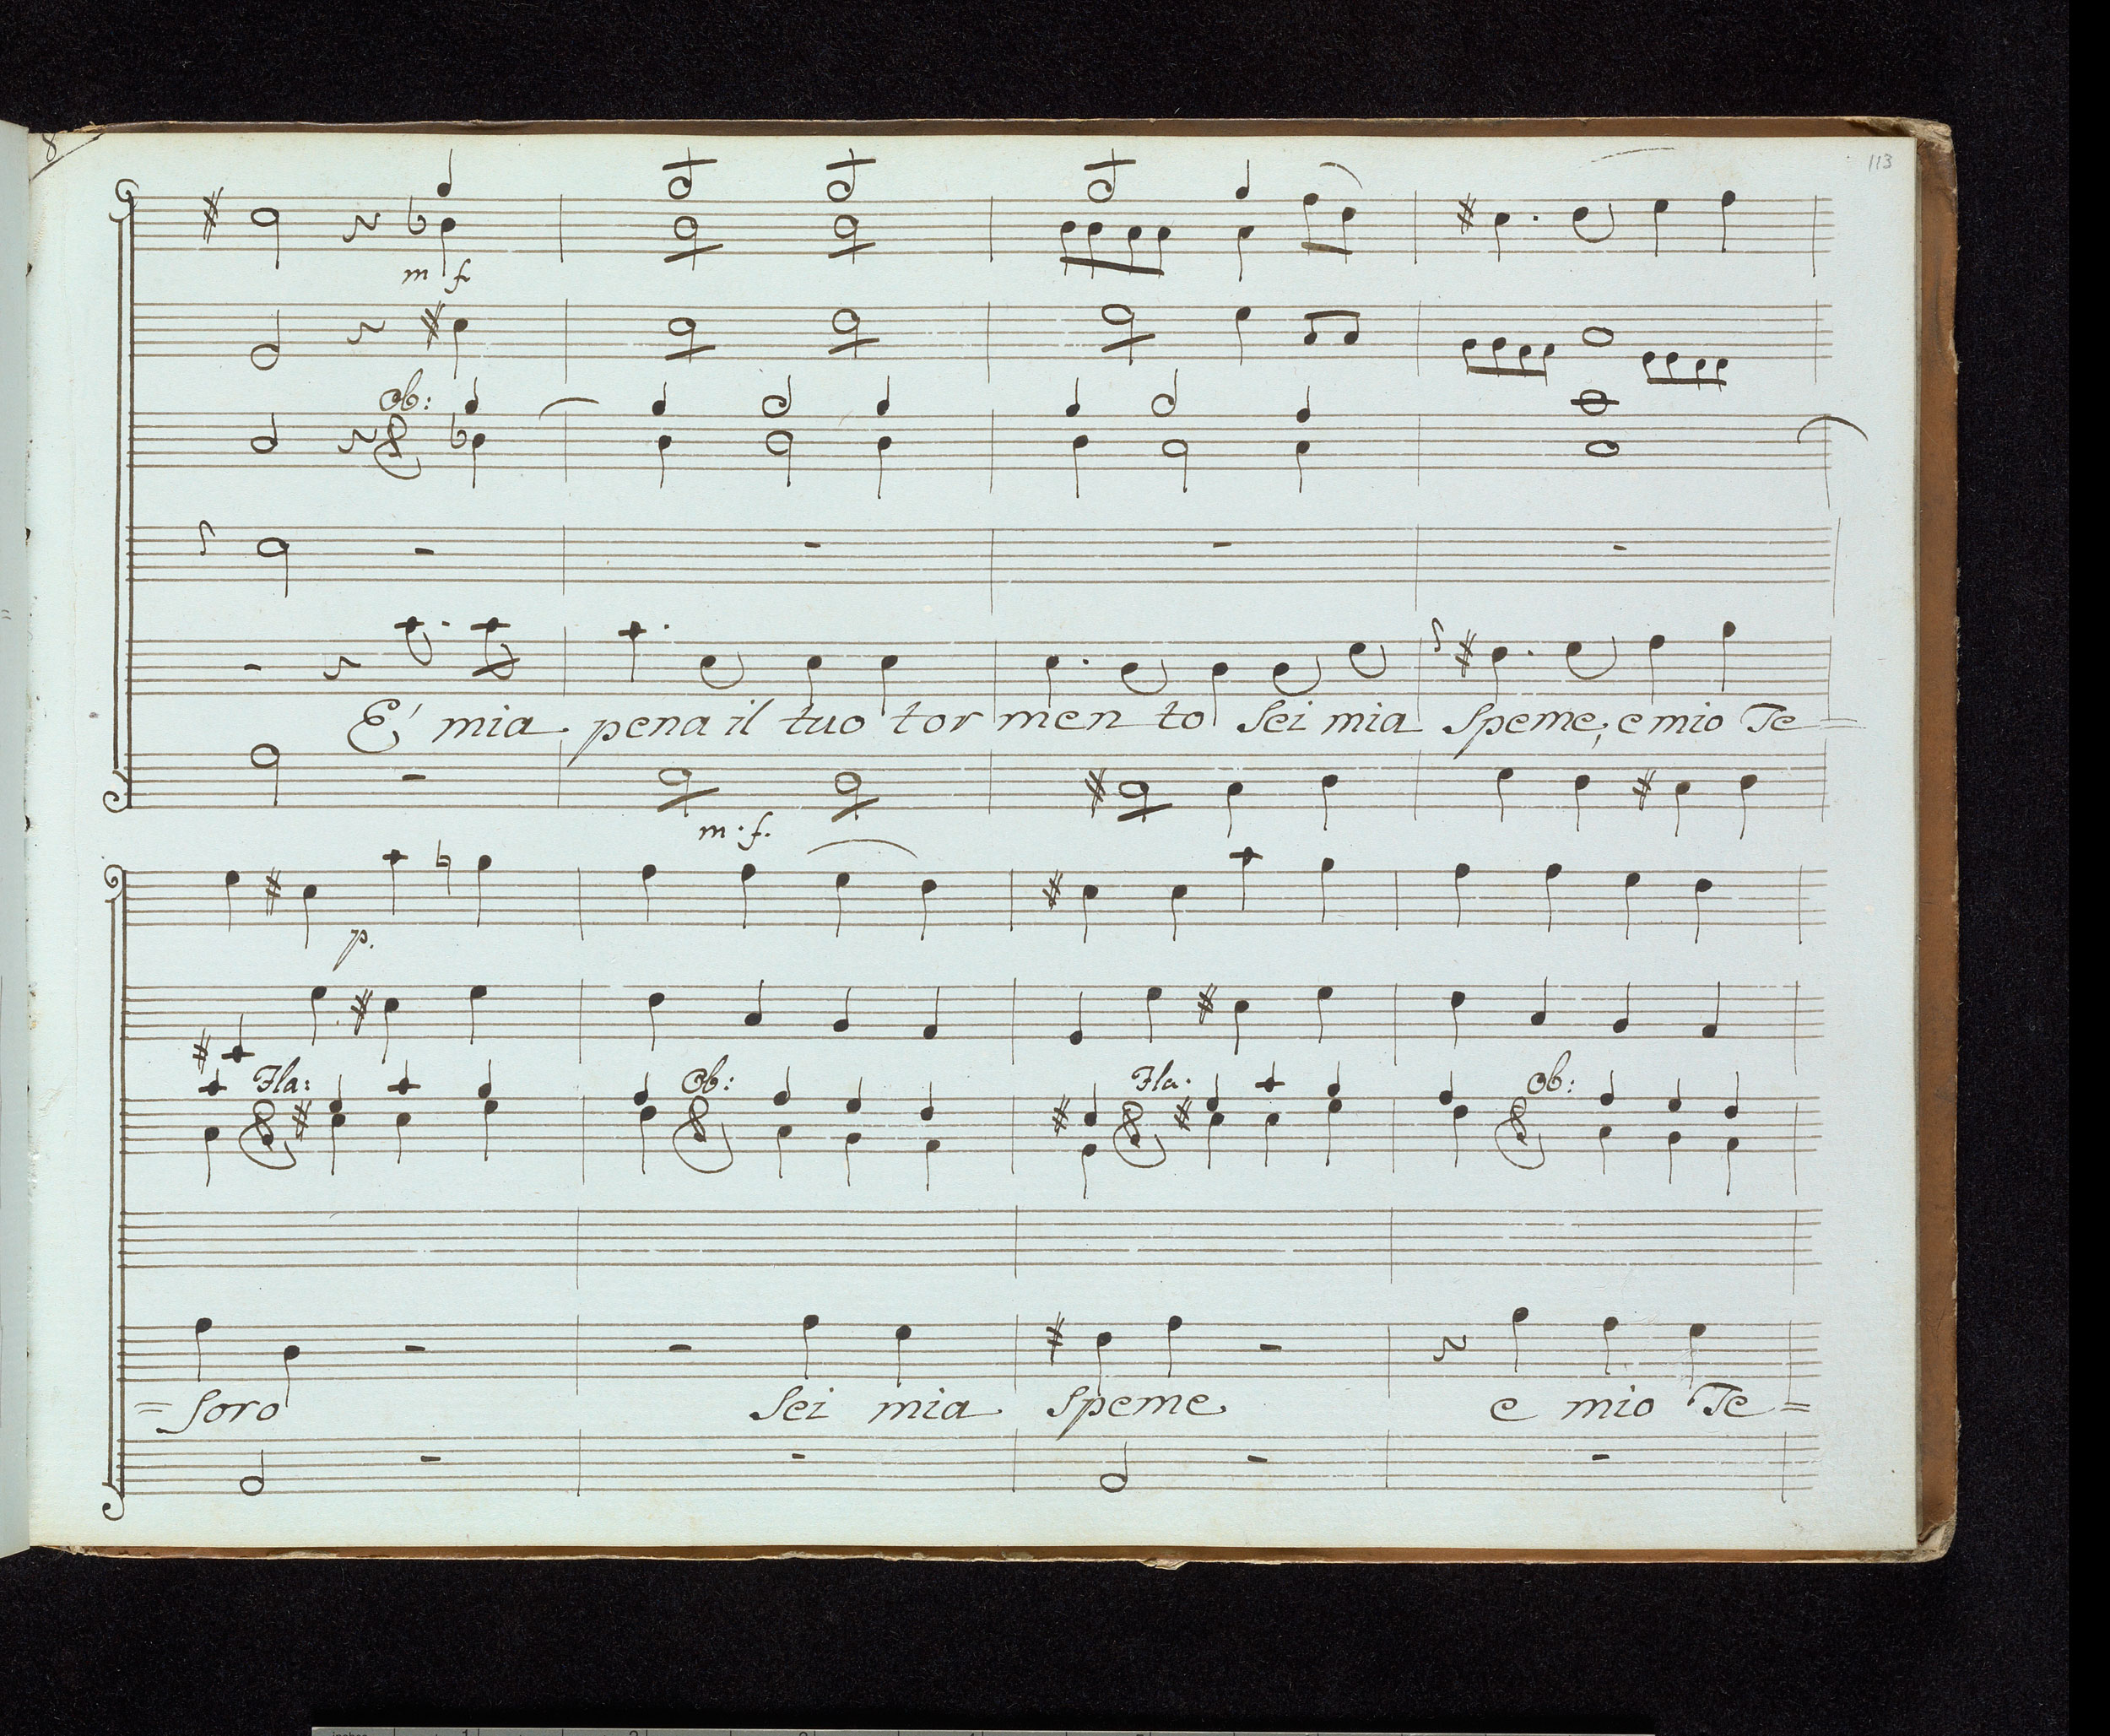 8
113
m f
Ob:
E' mia pena il tuo tor men to sei mia speme, e mio Te=
m. f.
p.
Fla: Ob: Fla. Ob:
=soro sei mia speme e mio Te=
inches 1 2 3 4 5